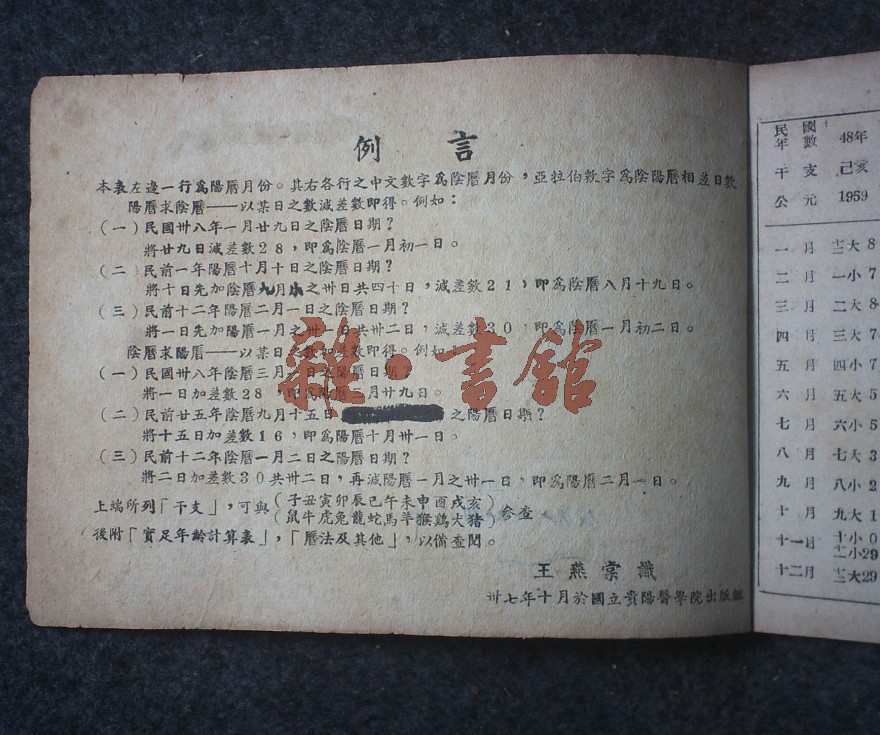 例言
本表左邊一行為陽曆月份。其右各行之中文數字為陰曆月份，亞拉伯數字為陰陽曆相差日數
陽曆求陰曆——以某日之數減差數即得。例如：
(一)民國卅八年一月廿九日之陰曆日期？
將廿九日減差數28，即為陰曆一月初一日。
(二)民前一年陽曆十月十日之陰曆日期？
將十日先加陰曆九月小之卅日共四十日，減差數21，即為陰曆八月十九日。
(三)民前十二年陽曆二月一日之陰曆日期？
將一日先加陽曆一月之卅一日共卅二日，減差數30，即為陰曆一月初二日。
陰曆求陽曆——以某日之數加差數即得。例如
(一)民國卅八年陰曆三月一日之陽曆日期？
將一日加差數28，即為陽曆三月廿九日。
(二)民前廿五年陰曆九月十五日 之陽曆日期？
將十五日加差數16，即為陽曆十月卅一日。
(三)民前十二年陰曆一月二日之陽曆日期？
將二日加差數30共卅二日，再減陽曆一月之卅一日，即為陽曆二月一日。
上端所列「干支」，可與(子丑寅卯辰巳午未申酉戌亥
鼠牛虎兔龍蛇馬羊猴鷄犬猪)參查。
後附「實足年齡計算表」，「曆法及其他」，以備查閱。
王燕棠識
卅七年十月於國立貴陽醫學院出版組
雜·書館
民國年數 48年
干支 己亥
公元 1959
一月 十二大 8
二月 一小 7
三月 二大 8
四月 三大 7
五月 四小 7
六月 五大 5
七月 六小 5
八月 七大 3
九月 八小 2
十月 九大 1
十一月 十小 0
十一小29
十二月 十二大29